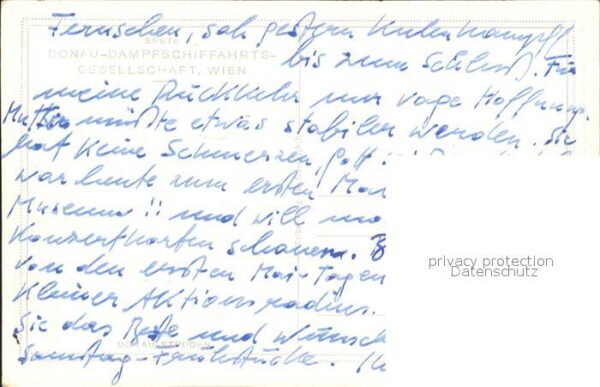 Fernsehen, sah gestern
ERSTE
DONAU-DAMPFSCHIFFAHRTS-
GESELLSCHAFT, WIEN
bis zum Schluß. Für
meine Rückkehr nur vage Hoffnung.
Mutter müßte etwas stabiler werden. Sie
hat keine Schmerzen, Gott
war heute zum ersten Mal
Museum!! und will
Konzertkarten schauen.
von den ersten Mai-Tagen
kleiner Aktionsradius.
Sie das Beste und
DONAUSTRUDEN
Samstag-Frühstücke.
privacy protection
Datenschutz